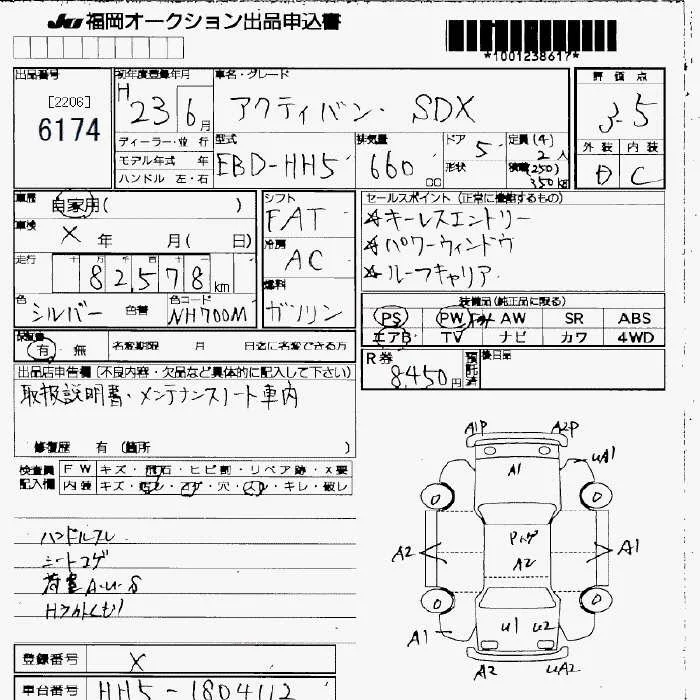 JU 福岡オークション出品申込書
*1001238617*
出品番号 [2206] 6174
初年度登録年月 H 23 6月
車名・グレード アクティバン SDX
評価点 3.5
ディーラー・並行
モデル年式 年
ハンドル 左・右
型式 EBD-HH5
排気量 660 cc
ドア 5
形状
定員 (4) 2人
積載 (250) 350 kg
外装 D 内装 C
車歴 自家用( )
車検 × 年 月( 日)
走行 82,578 km
色 シルバー 色替
色コード NH700M
シフト FAT
冷房 AC
燃料 ガソリン
セールスポイント (正常に機能するもの)
☆キーレスエントリー
☆パワーウィンドウ
☆ルーフキャリア
装備品(純正品に限る)
PS PW AW SR ABS
エアB TV ナビ カワ 4WD
保証書 有・無
名変期限 月 日迄に名変できる方
R券 8,450円
預託済
後日品
出品店申告欄(不良内容・欠品など具体的に記入して下さい)
取扱説明書・メンテナンスノート車内
修復歴 有 (箇所 )
検査員記入欄
FW キズ・飛石・ヒビ割・リペア跡・×要
内装 キズ・汚レ・コゲ・穴・スレ・キレ・破レ
ハンドルスレ
シートコゲ
荷室A.U.S
Hライトくもり
A1P A2P
UA1
A1
Pハゲ
A2
A2 A1
A1
U1 U2
A2 UA2
登録番号 ×
車台番号 HH5-1804112